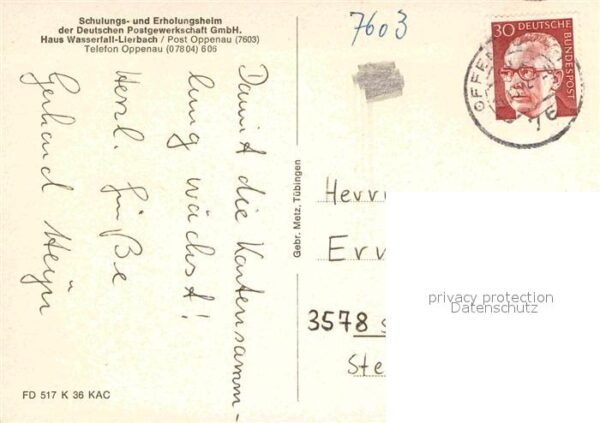 Schulungs- und Erholungsheim
der Deutschen Postgewerkschaft GmbH.
Haus Wasserfall-Lierbach / Post Oppenau (7603)
Telefon Oppenau (07804) 606
7603
30 DEUTSCHE
BUNDESPOST
OFFE
Damit die Kartensamm-
lung wächst!
Herzl. Grüße
Gerhard
Gebr. Metz, Tübingen
Herrn
Erw
3578 S
Ste
privacy protection
Datenschutz
FD 517 K 36 KAC